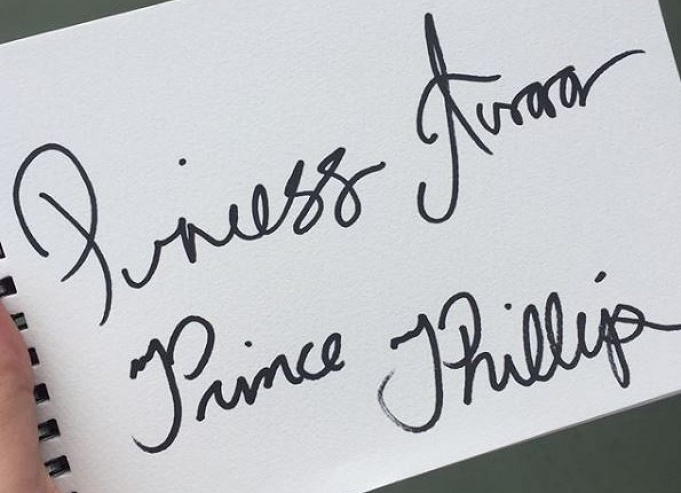 Princess Aurora
Prince Phillip